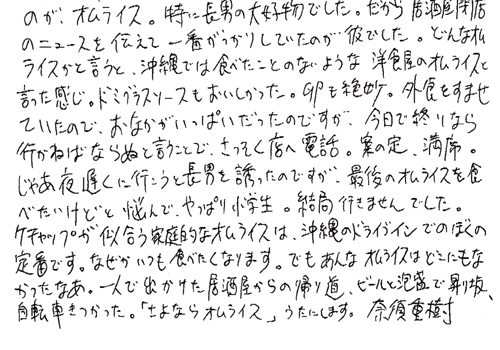 のが、オムライス。特に長男の大好物でした。だから居酒屋閉店
のニュースを伝えて一番がっかりしていたのが彼でした。どんなオム
ライスかと言うと、沖縄では食べたことのないような洋食屋のオムライスと
言った感じ。ドミグラスソースもおいしかった。卵も絶妙。外食をすませ
ていたので、おなかがいっぱいだったのですが、今日で終りなら
行かねばならぬと言うことで、さっそく店へ電話。案の定、満席。
じゃあ夜遅くに行こうと長男を誘ったのですが、最後のオムライスを食
べたいけどと悩んで、やっぱり小学生。結局行きませんでした。
ケチャップが似合う家庭的なオムライスは、沖縄のドライブインでのぼくの
定番です。なぜかいつも食べたくなります。でもあんなオムライスはどこにもな
かったなあ。一人で出かけた居酒屋からの帰り道、ビールと泡盛で昇り坂、
自転車きつかった。「さよならオムライス」うたにします。奈須重樹